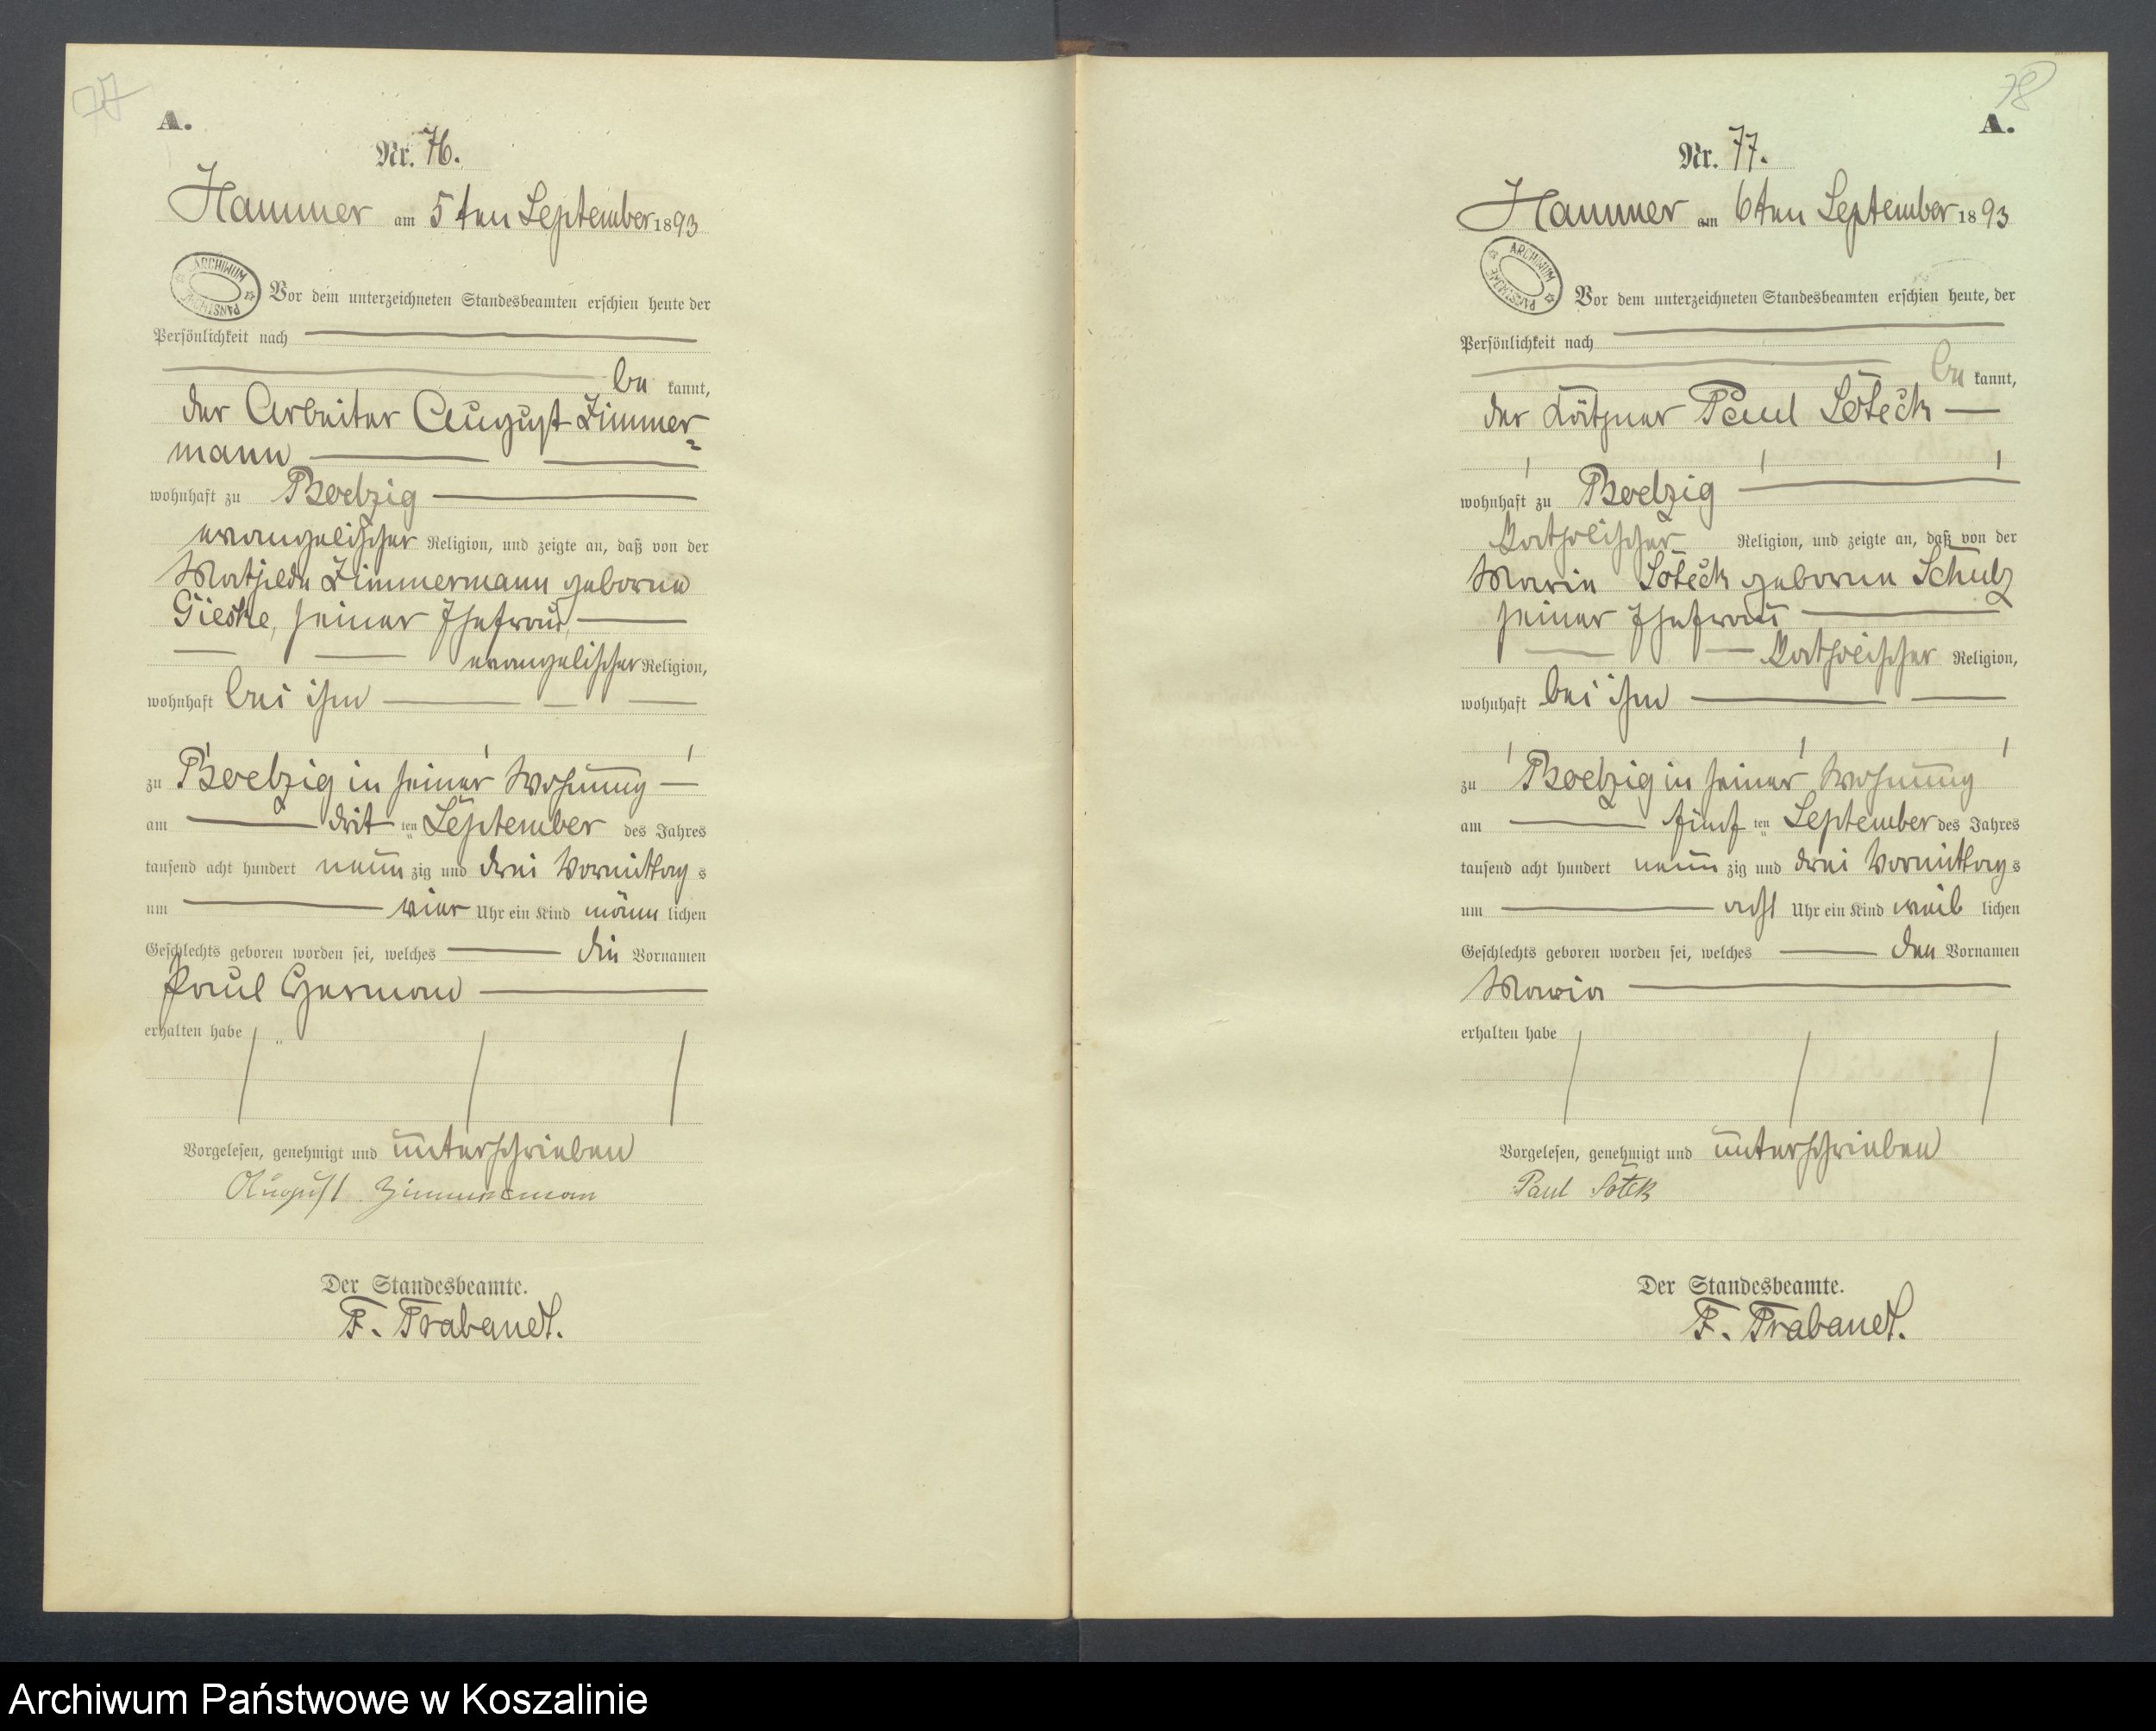 77
A.
Nr. 76.
Hammer am 5ten September 1893
ARCHIWUM PAŃSTWOWE
Vor dem unterzeichneten Standesbeamten erschien heute der
Persönlichkeit nach
be kannt,
der Arbeiter August Zimmer=
mann
wohnhaft zu Boelzig
evangelischer Religion, und zeigte an, daß von der
Mathilde Zimmermann geborne
Gieske, seiner Ehefrau,
evangelischer Religion,
wohnhaft bei ihm
zu Boelzig in seiner Wohnung
am drit ten September des Jahres
tausend acht hundert neun zig und drei Vormittag s
um vier Uhr ein Kind männ lichen
Geschlechts geboren worden sei, welches die Vornamen
Paul Herman
erhalten habe
Vorgelesen, genehmigt und unterschrieben
August Zimmerman
Der Standesbeamte.
F. Trabandt.
78
A.
Nr. 77.
Hammer am 6ten September 1893
ARCHIWUM PAŃSTWOWE
Vor dem unterzeichneten Standesbeamten erschien heute, der
Persönlichkeit nach
be kannt,
der Kätner Paul Soteck
wohnhaft zu Boelzig
Katholischer Religion, und zeigte an, daß von der
Marie Soteck geborne Schulz
seiner Ehefrau
Katholischer Religion,
wohnhaft bei ihm
zu Boelzig in seiner Wohnung
am fünf ten September des Jahres
tausend acht hundert neun zig und drei Vormittag s
um acht Uhr ein Kind weib lichen
Geschlechts geboren worden sei, welches den Vornamen
Maria
erhalten habe
Vorgelesen, genehmigt und unterschrieben
Paul Sotek
Der Standesbeamte.
F. Trabandt.
Archiwum Państwowe w Koszalinie